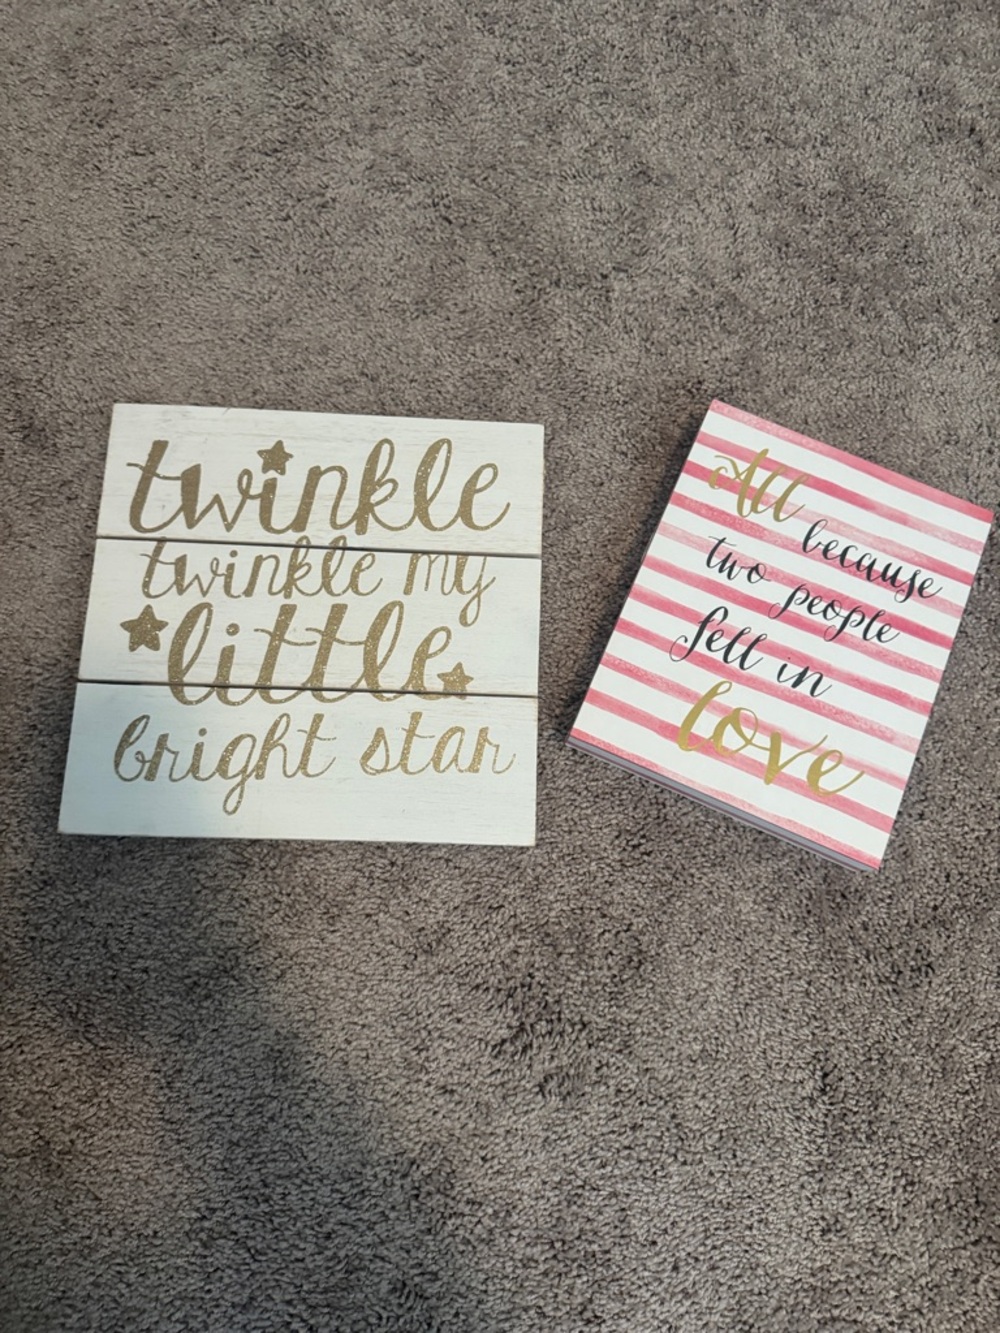 twinkle
twinkle my
little
bright star
All
because
two people
fell in
love